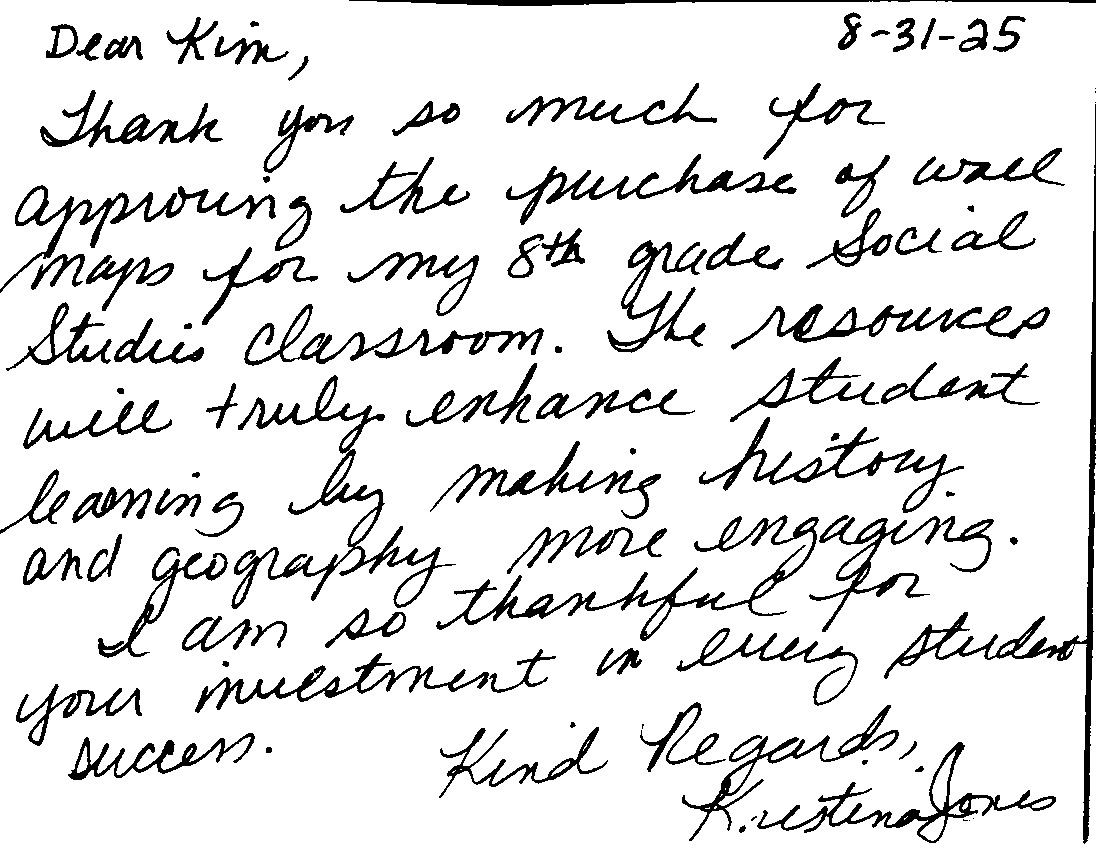 Dear Kim, 8-31-25
Thank you so much for
approving the purchase of wall
maps for my 8th grade Social
Studies classroom. The resources
will truly enhance student
learning by making history
and geography more engaging.
I am so thankful for
your investment in every student
success.
Kind Regards,
Kristena Jones